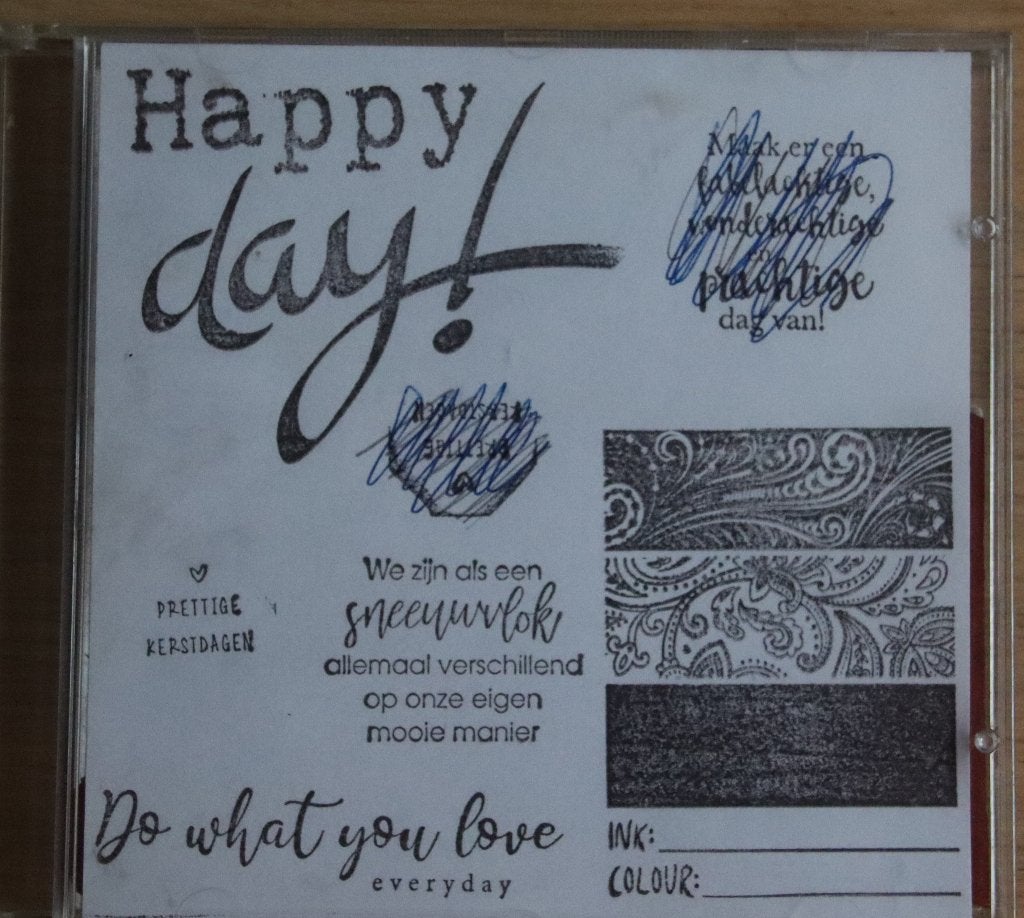 Happy
day!
Maak er een
fabelachtige,
wonderachtige
prachtige
dag van!
KERSTDAGEN
PRETTIGE
PRETTIGE
KERSTDAGEN
We zijn als een
sneeuwvlok
allemaal verschillend
op onze eigen
mooie manier
Do what you love
everyday
INK:
COLOUR: